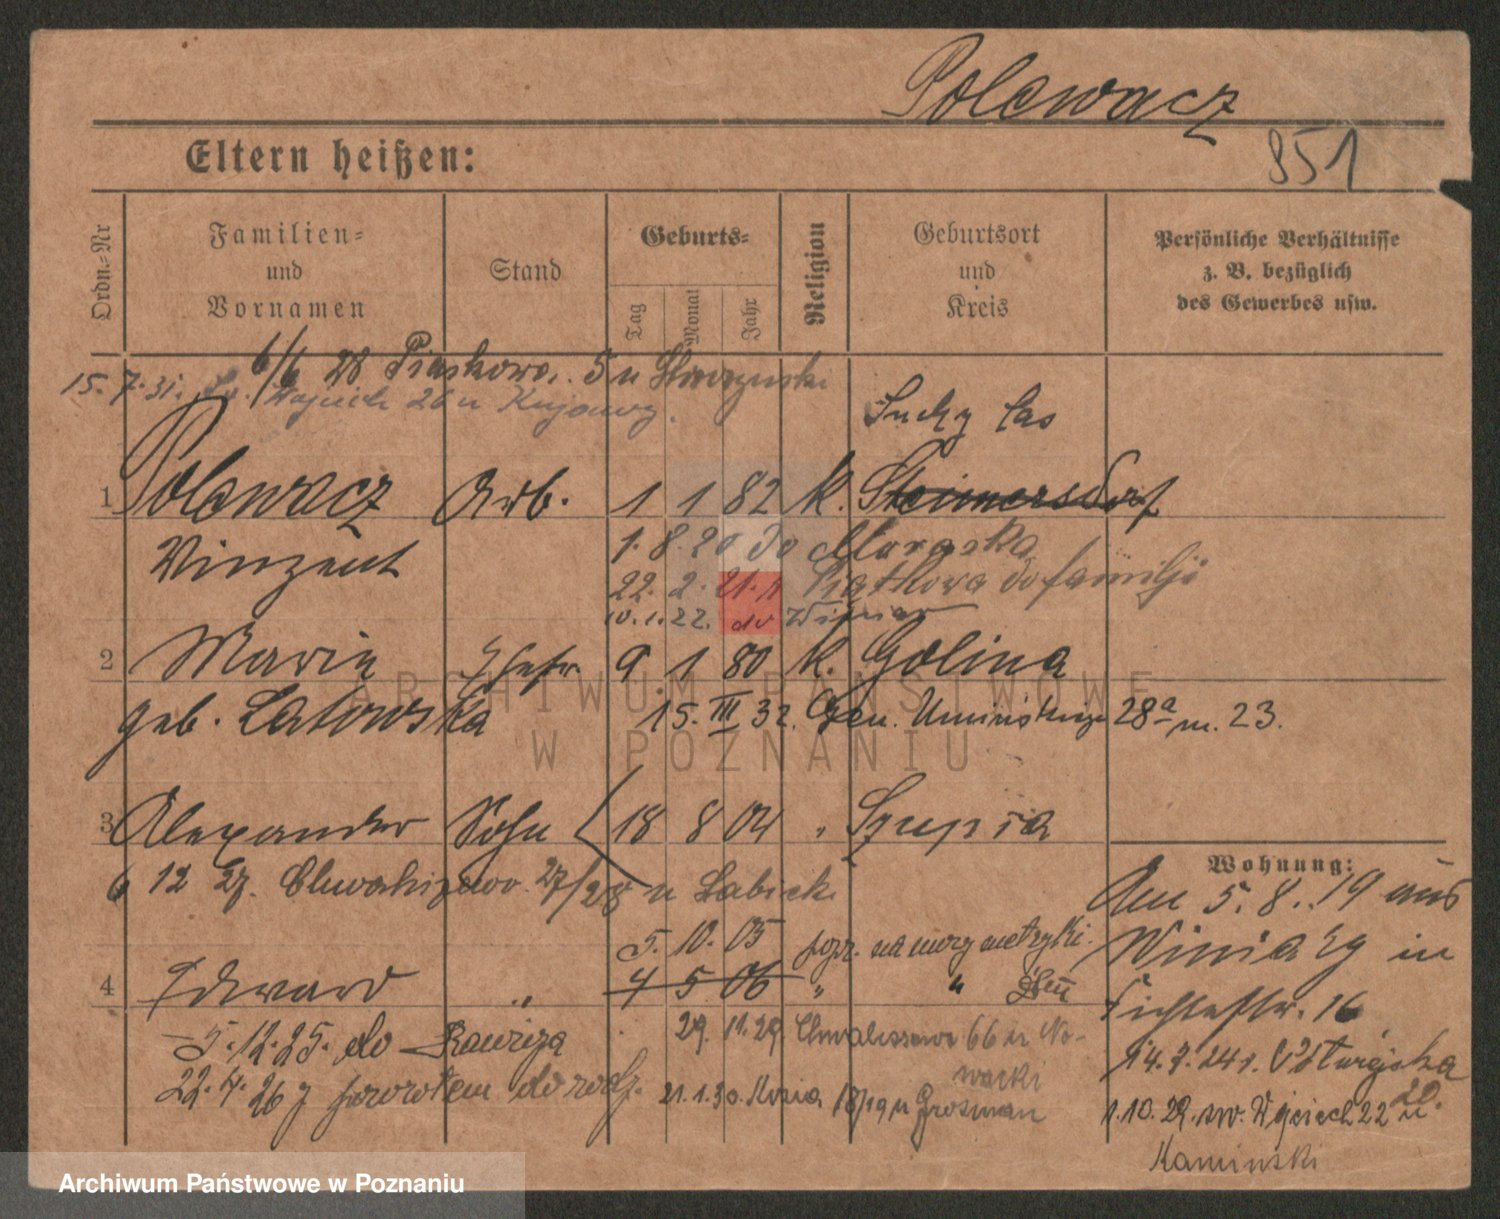 Polewacz
851
Eltern heißen:
Ordn.-Nr
Familien-
und
Vornamen
Stand
Geburts-
Tag
Monat
Jahr
Religion
Geburtsort
und
Kreis
Persönliche Verhältnisse
z. B. bezüglich
des Gewerbes usw.
6/6 28 Piaskowa. 5 u
15. 7. 31. Św. Wojciech 26 u Kujawy.
Suchy las
1 Polewacz Arb. 1 1 82 k. Steinersdorf
Vinzent
1. 8. 20 do Maraska
22. 2. 21. Piątkowa do familji
10. 1. 22. do Winiar
2 Maria Ehefr. 9 1 80 k. Golina
geb. Latowska
15. III 32. Gen. Umińskiego 28a m. 23.
3 Alexander Sohn 18 8 04 "
6 12 27. 27/28 u Labicki
Wohnung:
Am 5. 8. 19 aus
Winiary in
Fichtestr. 16
5. 10. 05 metryki.
4 Edward " 4 5 06 " "
5. 12. 25. do Rawicza
29. 11. 29 Chwaliszewo 66 u No-
wacki
14. 7. 24 r. Wturejska
20.
22. 4. 26 z powrotem do rodz.
21. 1. 30. 18/19 u Grosman
1. 10. 29. św. Wojciech 22 u
Kaminski
ARCHIWUM PAŃSTWOWE
W POZNANIU
Archiwum Państwowe w Poznaniu